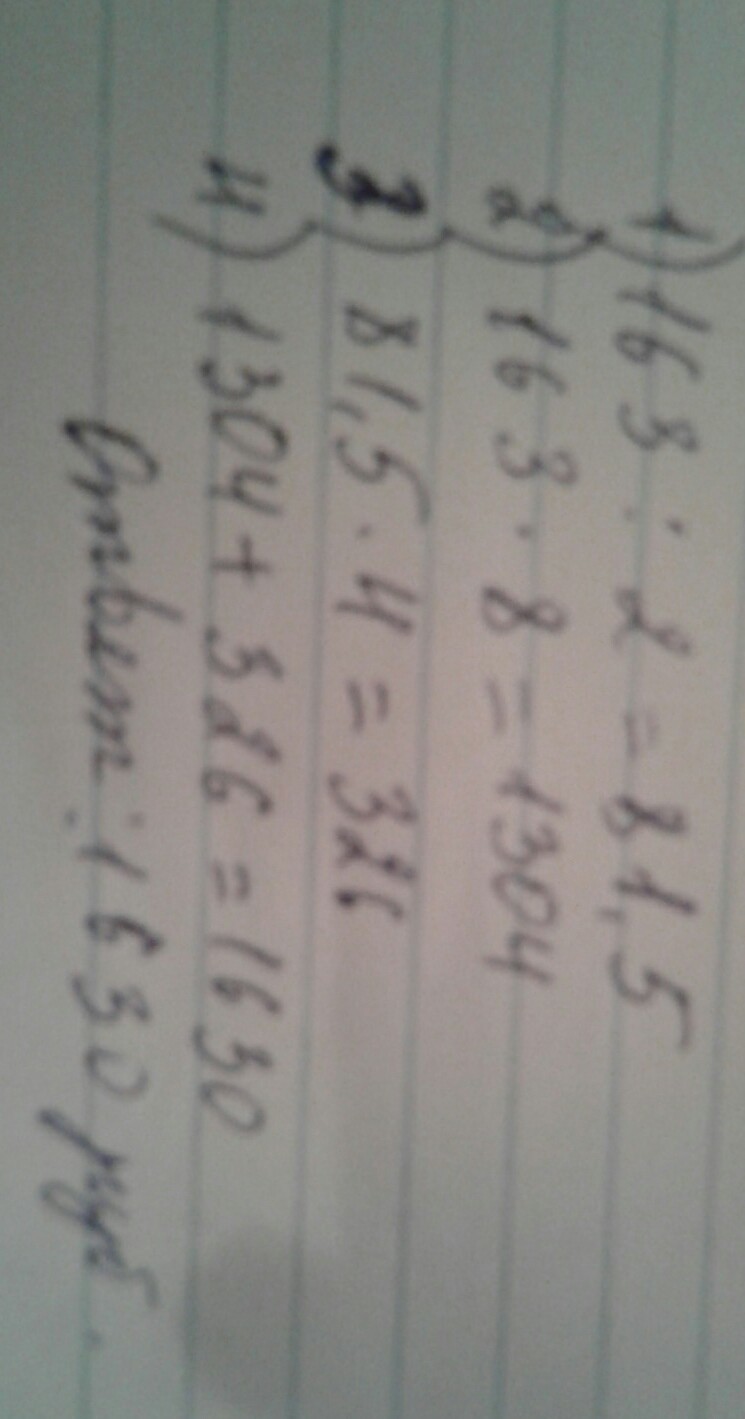 1) 163 : 2 = 81,5
2) 163 · 8 = 1304
3) 81,5 · 4 = 326
4) 1304 + 326 = 1630
Ответ: 1630 руб.